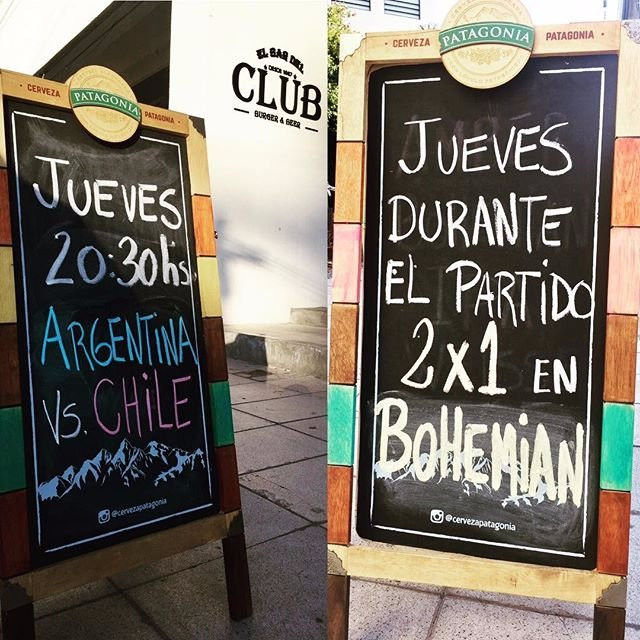 CERVEZA
PATAGONIA
PATAGONIA
JUEVES
20:30hs
ARGENTINA
VS. CHILE
@cervezapatagonia
EL BAR DEL
CLUB
BURGER & BEER
CERVEZA
PATAGONIA
PATAGONIA
JUEVES
DURANTE
EL PARTIDO
2x1 EN
BOHEMIAN
@cervezapatagonia